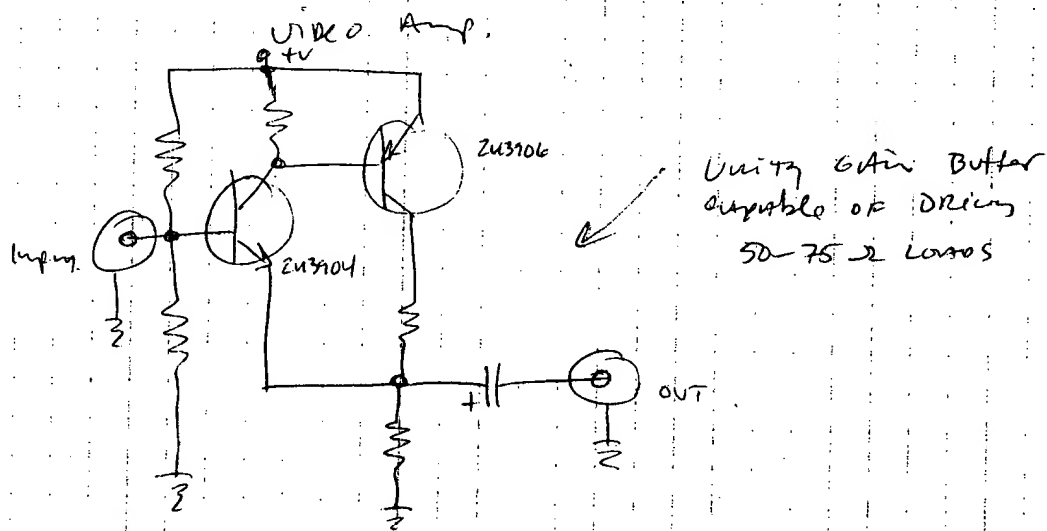 Video Amp.
+V
2N3906
Unity Gain Buffer
capable of Driving
50-75 Ω Loads
Input
2N3904
+
OUT